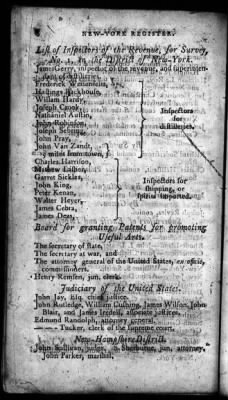 NEW-YORK REGISTER.
List of Inspectors of the Revenue, for Survey,
No. 1. in the District of New-York.
James Gerry, inspector of the revenue, and superinten-
dant of distilleries.
Frederick
Hallings Backhouse,
William Hardy,
Joseph Crook,
Nathaniel Austin,
John
Joseph
John Pray,
John Van Zandt,
miles from town,
Inspectors
for
distilleries.
Charles Harrison,
Mathew
Garret Sickles,
John King,
Peter Kenan,
Walter Heyer,
James Cobra,
James Deas,
Inspectors for
shipping, or
spirits imported.
Board for granting Patents for promoting
Useful Arts.
The secretary of state,
The secretary at war, and
The attorney general of the United States, ex officio,
commissioners.
Henry Remsen, jun. clerk.
Judiciary of the United States.
John Jay, esq. chief justice.
John Rutledge, William Cushing, James Wilson, John
Blair, and James Iredell, associate justices.
Edmund Randolph, attorney general.
Tucker, clerk of the supreme court.
New-Hampshire District.
John Sullivan, judge, Sherburne, jun. attorney,
John Parker, marshal.